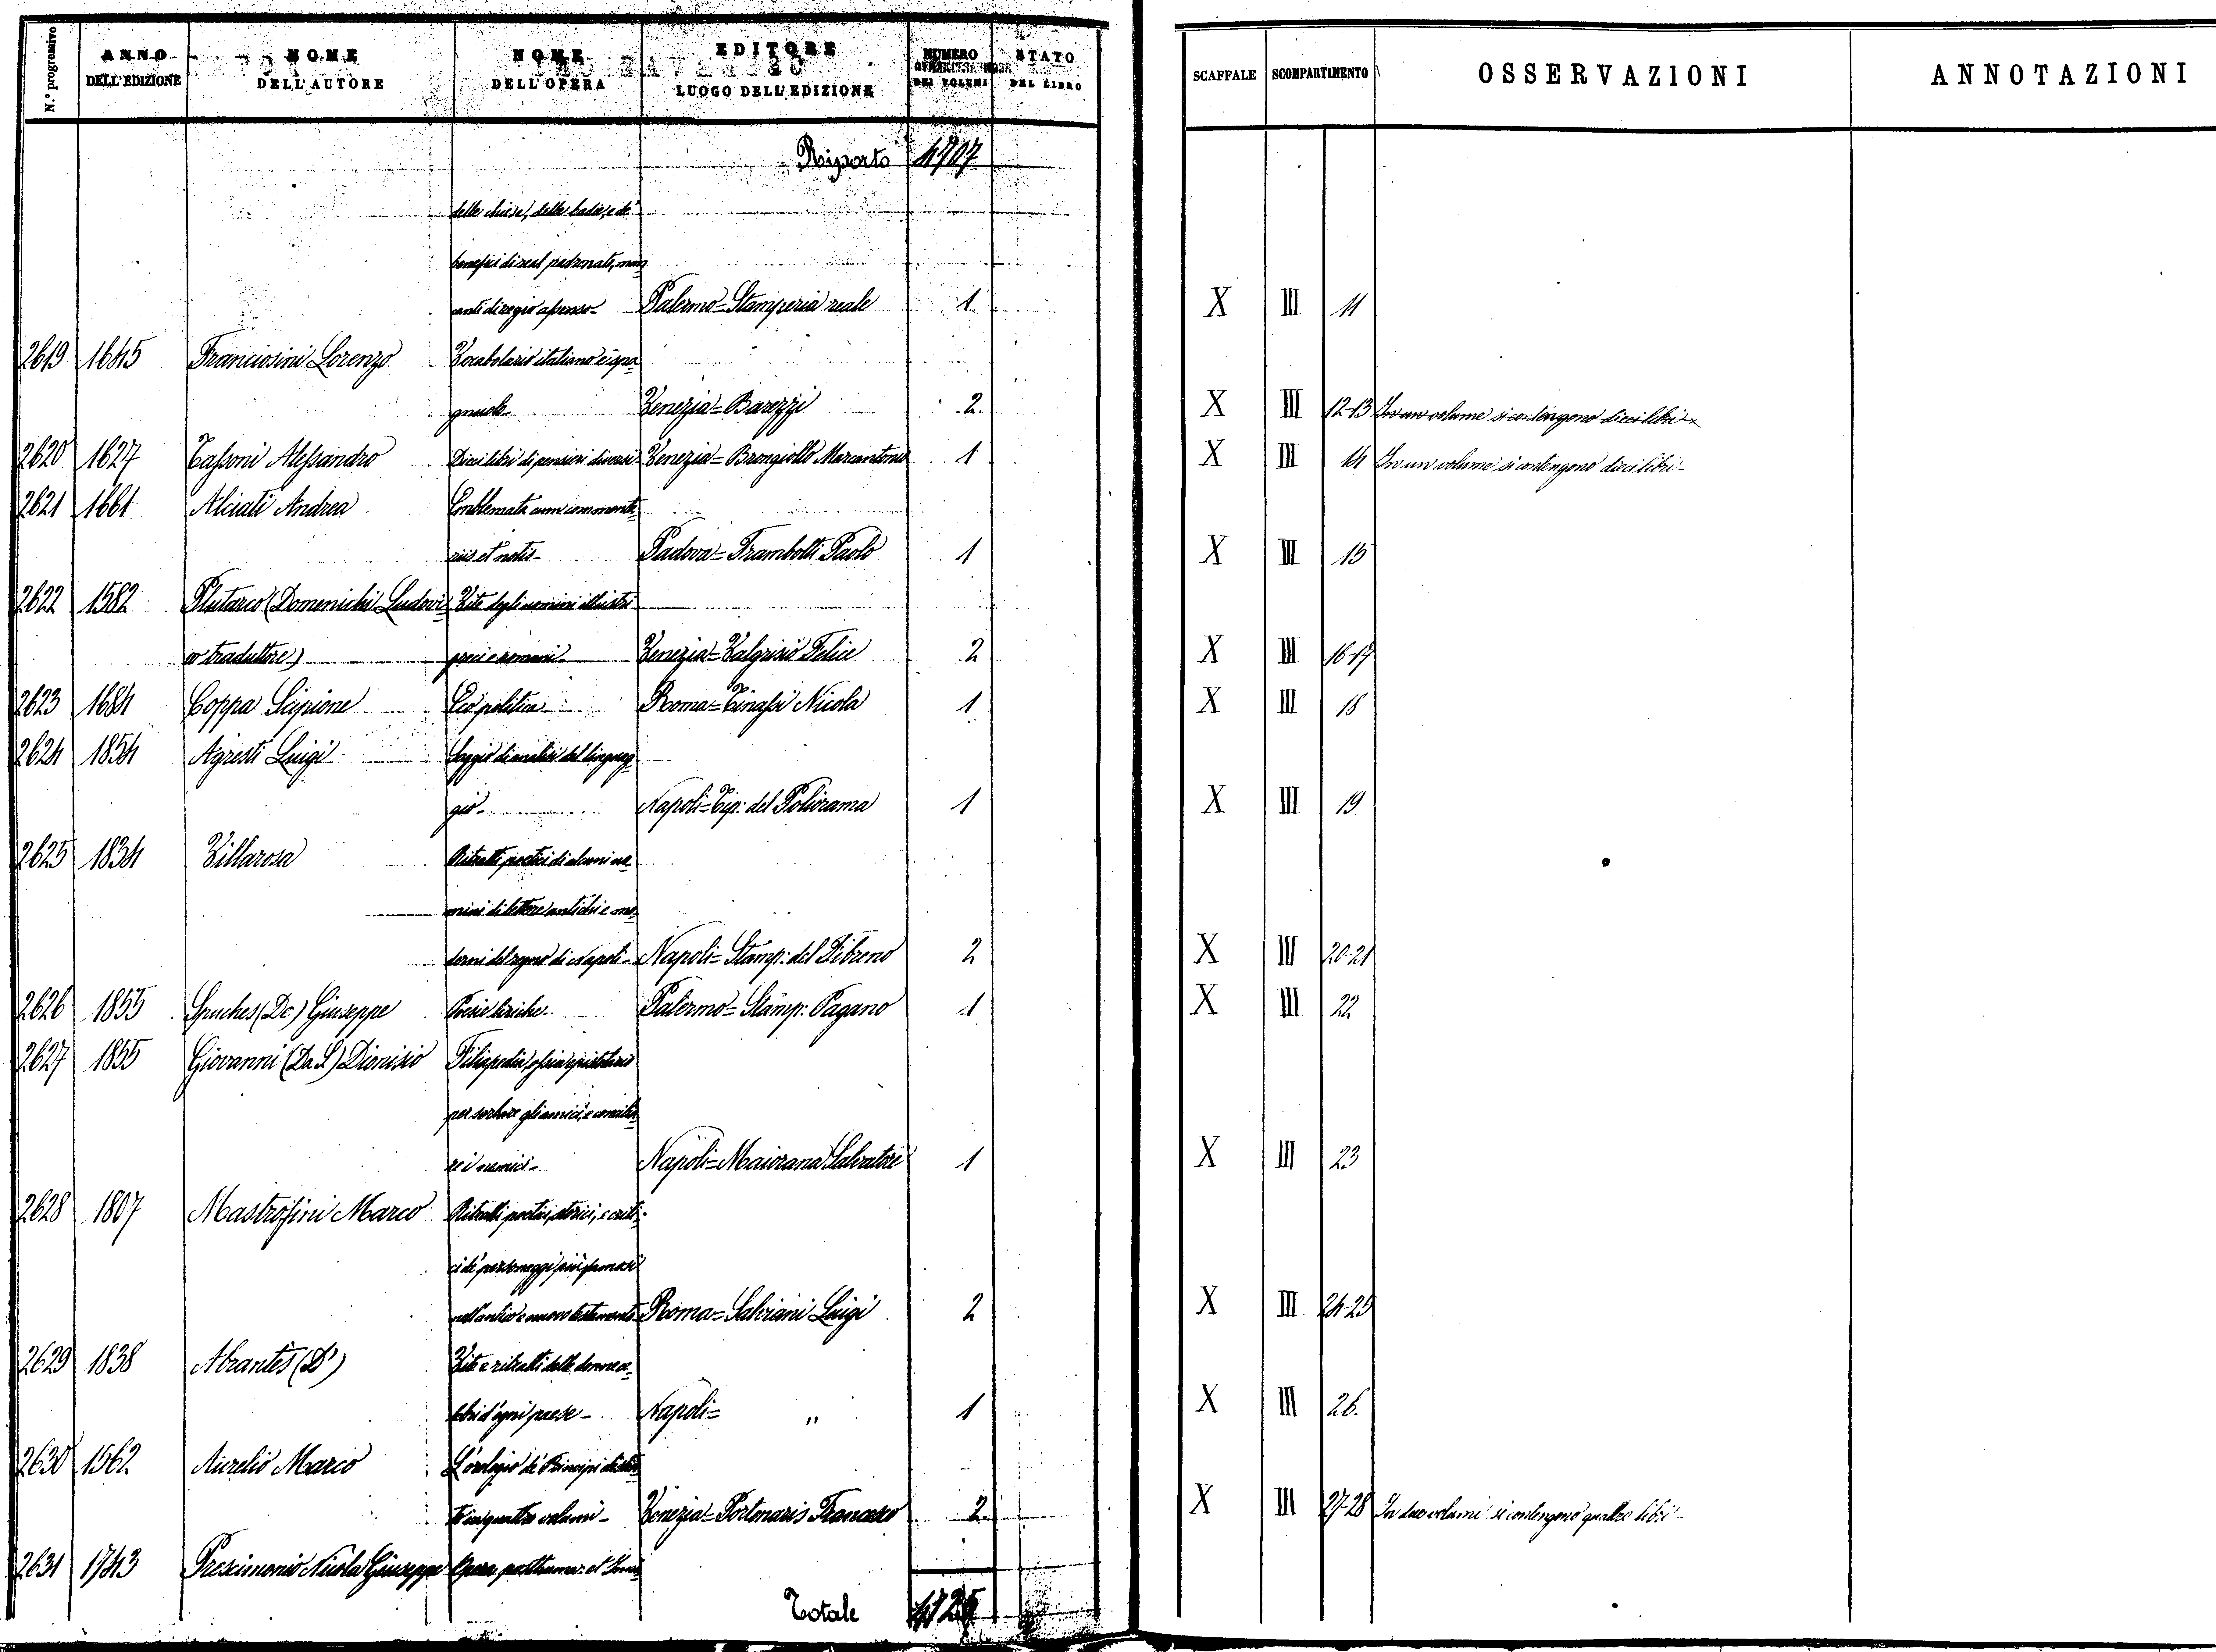 N.° progressivo ANNO DELL'EDIZIONE NOME DELL'AUTORE NOME DELL'OPERA EDITORE LUOGO DELL'EDIZIONE NUMERO DEI VOLUMI STATO DEL LIBRO SCAFFALE SCOMPARTIMENTO OSSERVAZIONI ANNOTAZIONI
Riporto 4707
delle chiese, delle badie, e de'
benefici di real padronati, man
canti di regio assenso- Palermo=Stamperia reale 1 X III 11
2619 1645 Franciosini Lorenzo Vocabolario italiano e spa
gnuolo. Venezia=Barezzi 2 X III 12-13 In un volume si contengono dieci libri
2620 1627 Tassoni Alessandro Dieci libri di pensieri diversi- Venezia=Brongiollo Marcantonio 1 X III 14 In un volume si contengono dieci libri-
2621 1661 Alciati Andrea Emblemata cum commenta
riis et notis- Padova=Frambotti Paolo 1 X III 15
2622 1582 Plutarco (Domenichi Ludovi Vite degli uomini illustri
co traduttore) greci e romani- Venezia=Valgrisio Felice 2 X III 16-17
2623 1684 Coppa Scipione politica Roma=Tinassi Nicola 1 X III 18
2624 1854 Agresti Luigi Saggio di analisi del linguag
gio- Napoli=Tip: del Poliorama 1 X III 19
2625 1834 Villarosa Ritratti poetici di alcuni uo
mini di lettere antichi e mo
derni del regno di Napoli- Napoli=Stamp: del Fibreno 2 X III 20-21
2626 1855 Spuches (De) Giuseppe Poesie liriche. Palermo=Stamp: Pagano 1 X III 22
2627 1855 Giovanni (Da S.) Dionisio Filispedia, ossia epistolario
per serbare gli amici, e concilia
re i nemici- Napoli=Maiorana Salvatore 1 X III 23
2628 1807 Mastrofini Marco Ritratti poetici, storici, e criti
ci de' personaggi più famosi
nell'antico e nuovo testamento Roma=Salvioni Luigi 2 X III 24-25
2629 1838 Abrantes (D') Vite e ritratti delle donne ce
lebri d'ogni paese- Napoli= " 1 X III 26.
2630 1562 Aurelio Marco L'orologio de' Principi distin
to in quattro volumi- Venezia=Portonaris Francesco 2 X III 27-28 In due volumi si contengono quattro libri-
2631 1743 Prescimonio Nicola Giuseppe Opera posthuma et
Totale 4725